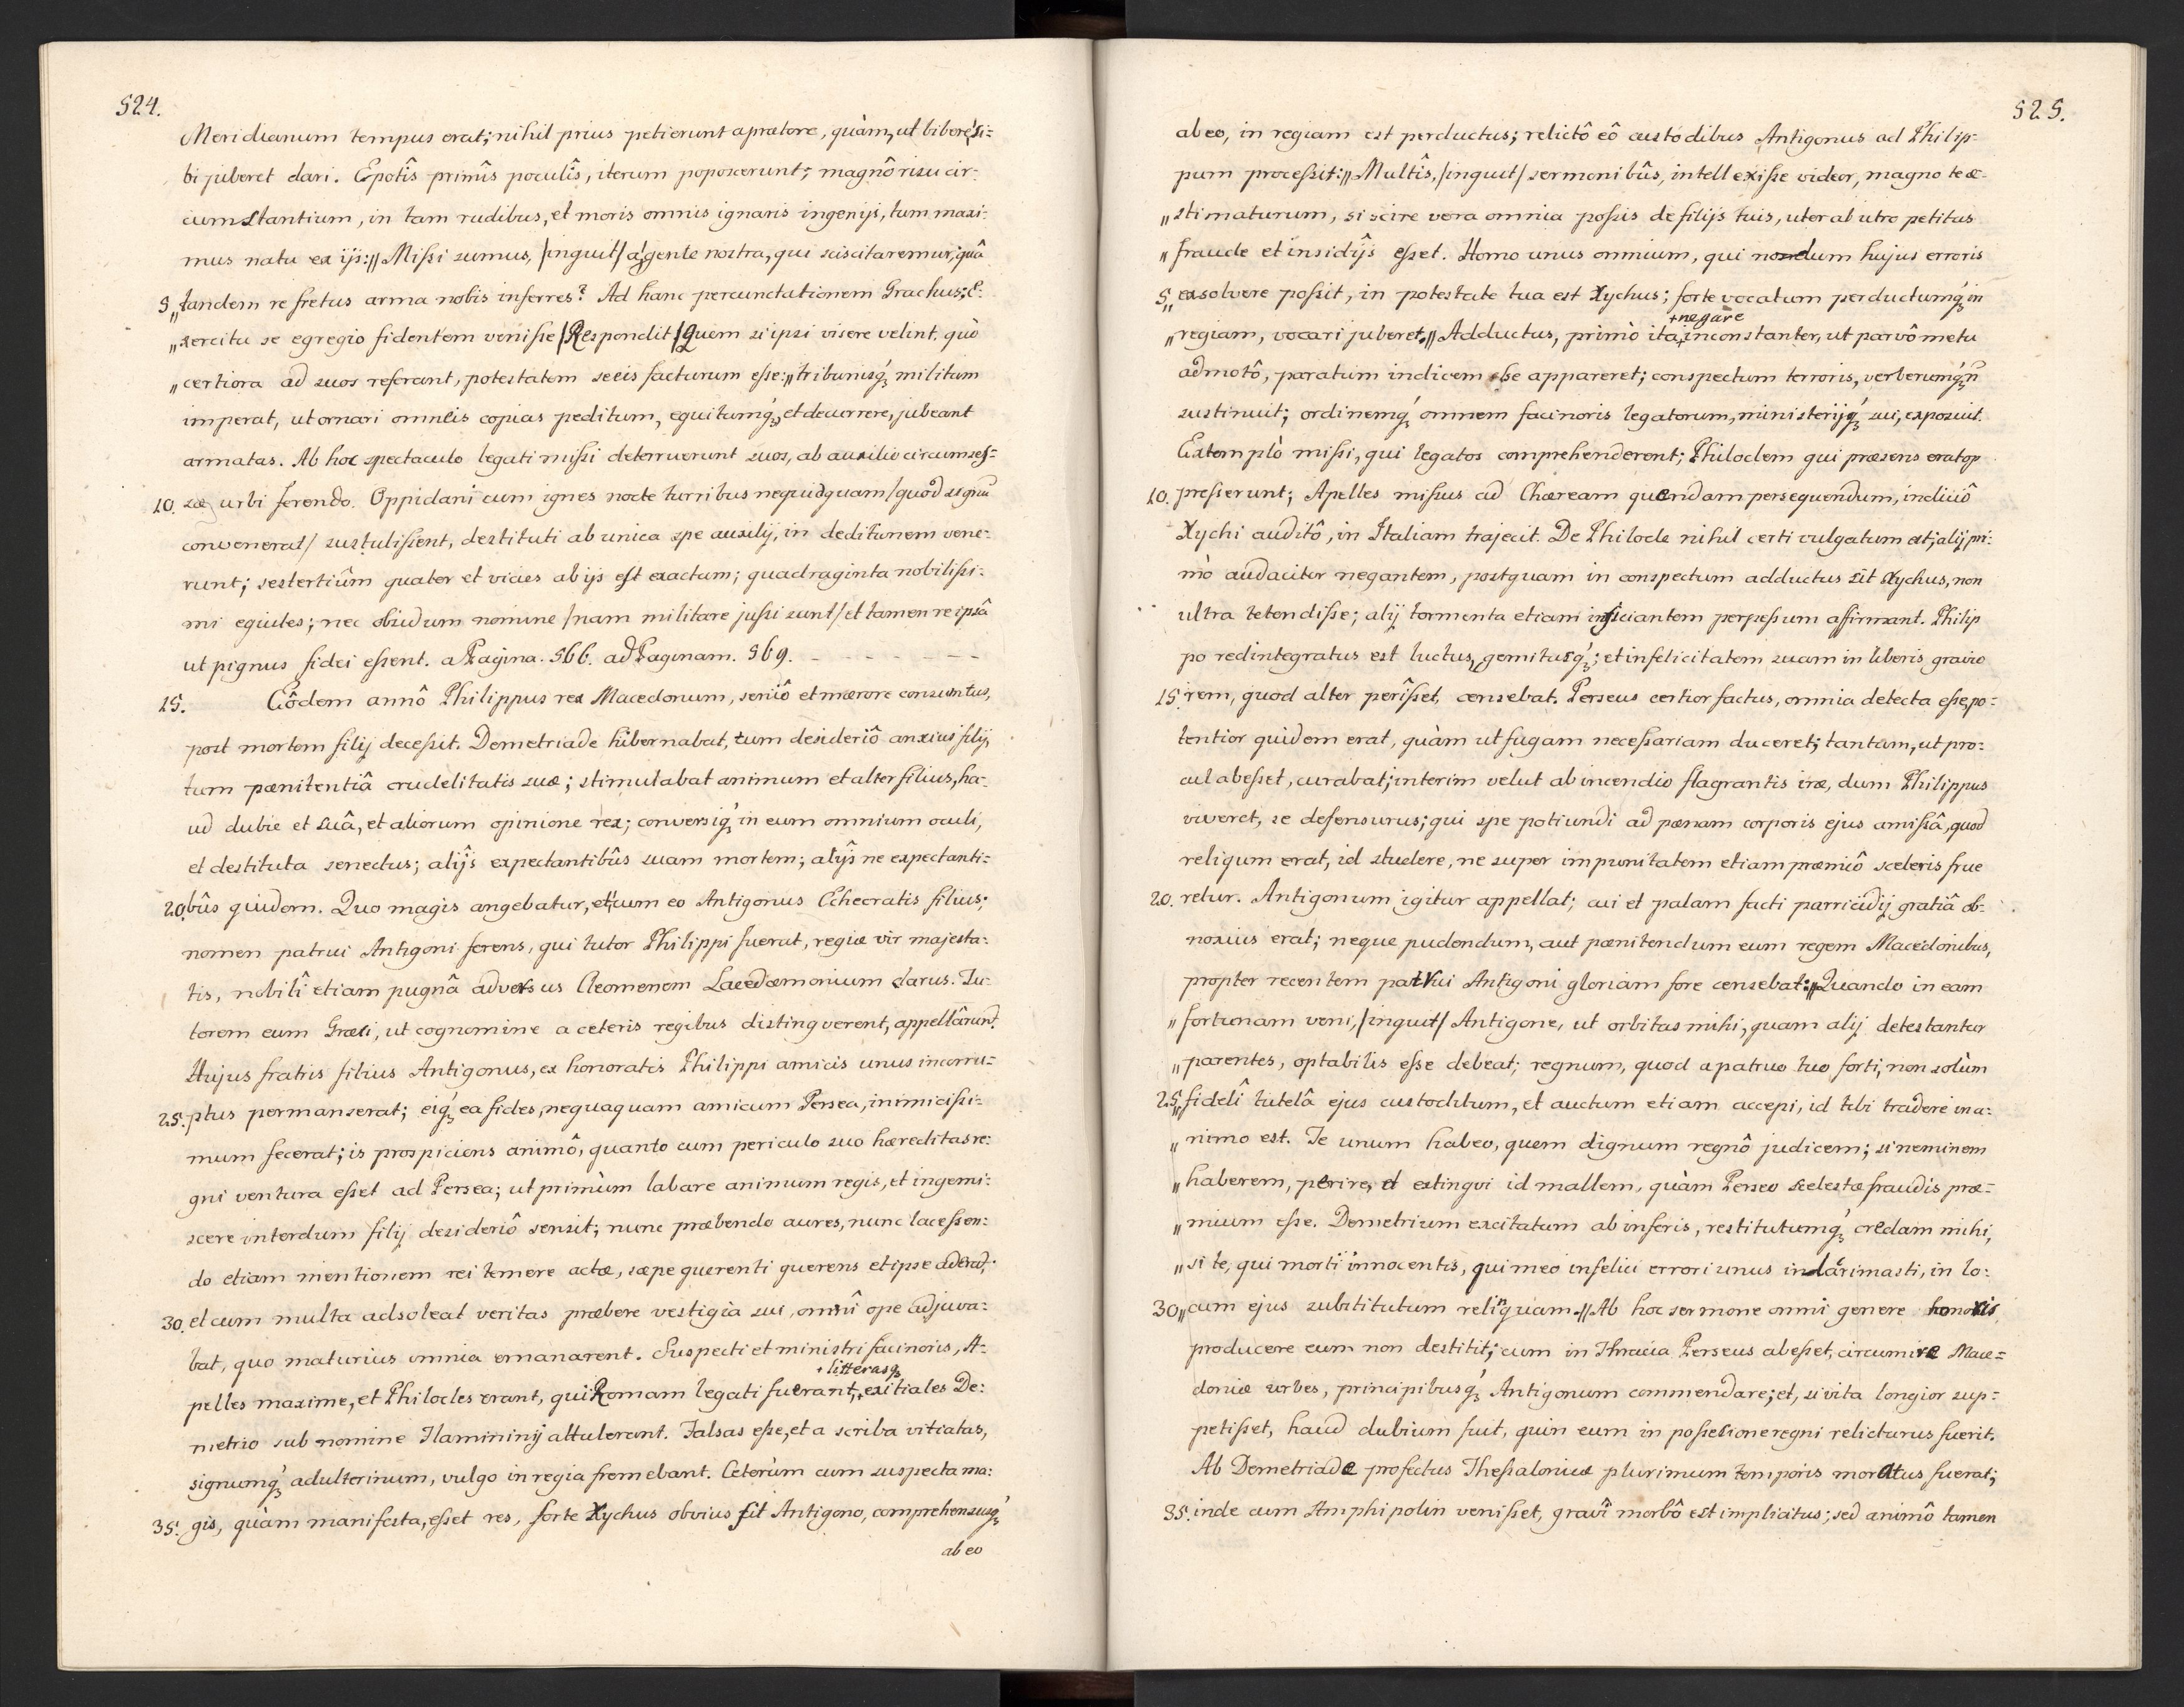 524.
Meridianum tempus erat; nihil prius petierunt a prætore, quàm, ut bibere si=
bi juberet dari. Epotîs primîs poculîs, iterum poposcerunt; magnô risu cir=
cumstantium, in tam rudibus, et moris omnis ignaris ingenijs, tum maxi=
mus natu ex ijs: „ Missi sumus, /inquit/ a gente nostra, qui sciscitaremur, quâ
5 „ tandem re fretus arma nobis inferres? Ad hanc percunctationem Grachus; E=
„ xercitu se egregio fidentem venisse /Respondit/ Quem si ipsi visere velint, quò
„ certiora ad suos referant, potestatem se eis facturum esse: „ tribunisq́ꝫ militum
imperat, ut ornari omnes copias peditum, equitumq́ꝫ, et decurrere, jubeant
armatas. Ab hoc spectaculo legati missi deterruerunt suos, ab auxilio circumses=
10. sæ urbi ferendo. Oppidani cum ignes nocte turribus nequidquam /quod signũ
convenerat/ sustulissent, destituti ab unica spe auxilij, in deditionem vene=
runt; sestertiûm quater et vicies ab ijs est exactum; quadraginta nobilissi=
mi equites; nec obsidum nomine /nam militare jussi sunt/ et tamen re ipsâ
ut pignus fidei essent. a Pagina. 566. ad Paginam. 569. - - - - - - -
15. Eôdem annô Philippus rex Macedonum, seniô et mærore consumtus,
post mortem filij decessit. Demetriade hibernabat, tum desideriô anxius filij,
tum pænitentiâ crudelitatis suæ; stimulabat animum et alter filius, ha=
ud dubie et suâ, et aliorum opinione rex; conversiq́ꝫ in eum omnium oculi,
et destituta senectus; alijs expectantibûs suam mortem; alijs ne expectanti=
20. bûs quidem. Quo magis angebatur, et cum eo Antigonus Echecratis filius;
nomen patrui Antigoni ferens, qui tutor Philippi fuerat, regiæ vir majesta=
tis, nobilî etiam pugnâ adversus Cleomenem Lacedæmonium clarus. Tu=
torem eum Græci, ut cognomine a ceteris regibus distingverent, appellârunt.
Hujus fratris filius Antigonus, ex honoratis Philippi amicis unus incorru=
25. ptus permanserat; eiq́ꝫ ea fides, nequaquam amicum Persea, inimicissi=
mum fecerat; is prospiciens animô, quanto cum periculo suo hæreditas re=
gni ventura esset ad Persea; ut primùm labare animum regis, et ingemi=
scere interdum filij desideriô sensit; nunc præbendo aures, nunc lacessen=
do etiam mentionem rei temere actæ, sæpe querenti querens et ipse aderat;
30. et cum multa adsoleat veritas præbere vestigia sui, omnî ope adjuva=
bat, quo maturius omnia emanarent. Suspecti et ministri facinoris, A=
+ litterasqꝫ
pelles maxime, et Philocles erant, qui Romam legati fuerant, + exitiales De=
metrio sub nomine Flamininij attulerant. Falsas esse, et a scriba vitiatas,
signumq́ꝫ adulterinum, vulgo in regia fremebant. Ceterùm cum suspecta ma=
35. gis, quàm manifesta, esset res, forte Xychus obvius fit Antigono, comprehensusq́ꝫ
ab eo
525.
ab eo, in regiam est perductus; relictô eô custodibus Antigonus ad Philip=
pum processit: „ Multîs, /inquit/ sermonibûs, intellexisse videor, magno te æ=
„ stimaturum, si scire vera omnia possis de filijs tuis, uter ab utro petitus
„ fraude et insidijs esset. Homo unus omnium, qui nodum hujus erroris
5. „ exsolvere possit, in potestate tua est Xychus; forte vocatum perductumq́ꝫ in
+ negare
„ regiam, vocari juberet. „ Adductus, primò ita + inconstanter, ut parvô metu
admotô, paratum indicem esse appareret; conspectum terroris, verberumq́ꝫ ñ
sustinuit; ordinemq́ꝫ omnem facinoris legatorum, ministerijq́ꝫ sui, exposuit.
Extemplò missi, qui legatos comprehenderent; Philoclem qui præsens erat op
10. presserunt; Apelles missus ad Chæream quendam persequendum, indiciô
Xychi auditô, in Italiam trajecit. De Philocle nihil certi vulgatum est; alij pri=
mò audaciter negantem, postquam in conspectum adductus sit Xychus, non
ultra tetendisse; alij tormenta etiam inficiantem perpessum affirmant. Philip
po redintegratus est luctus, gemitusq́ꝫ; et infelicitatem suam in liberis gravio
15. rem, quod alter perîsset, censebat. Perseus certior factus, omnia detecta esse, po=
tentior quidem erat, quàm ut fugam necessariam duceret; tantum, ut pro=
cul abesset, curabat; interim velut ab incendio flagrantis iræ, dum Philippus
viveret, se defensurus; qui spe potiundi ad pænam corporis ejus amissâ, quod
reliqum erat, id studere, ne super impunitatem etiam præmiô sceleris frue
20. retur. Antigonum igitur appellat; cui et palam facti parricidij gratiâ ob=
noxius erat; neque pudendum, aut pænitendum eum regem Macedonibus,
propter recentem patrui Antigoni gloriam fore censebat: „ Quando in eam
„ fortunam veni, /inquit/ Antigone, ut orbitas mihi, quam alij detestantur
„ parentes, optabilis esse debeat; regnum, quod a patruo tuo forti, non solùm
25. „ fidelî tutelâ ejus custoditum, et auctum etiam accepi, id tibi tradere in a=
„ nimo est. Te unum habeo, quem dignum regnô judicem; si neminem
„ haberem, perire, et extingvi id mallem, quàm Perseo scelestæ fraudis præ=
„ mium esse. Demetrium excitatum ab inferis, restitutumq́ꝫ credam mihi,
„ si te, qui morti innocentis, qui meo infelici errori unus inlacrimasti, in lo=
30 „ cum ejus substitutum relinquam. „ Ab hoc sermone omni genere honoris
producere eum non destitit; cum in Thracia Perseus abesset, circumire Mace=
doniæ urbes, principibusq́ꝫ Antigonum commendare; et, si vita longior sup=
petisset, haud dubium fuit, quin eum in possessione regni relicturus fuerit.
Ab Demetriade profectus Thessalonicæ plurimum temporis moratus fuerat;
35. inde cum Amphipolin venisset, gravî morbô est implicitus; sed animô tamen